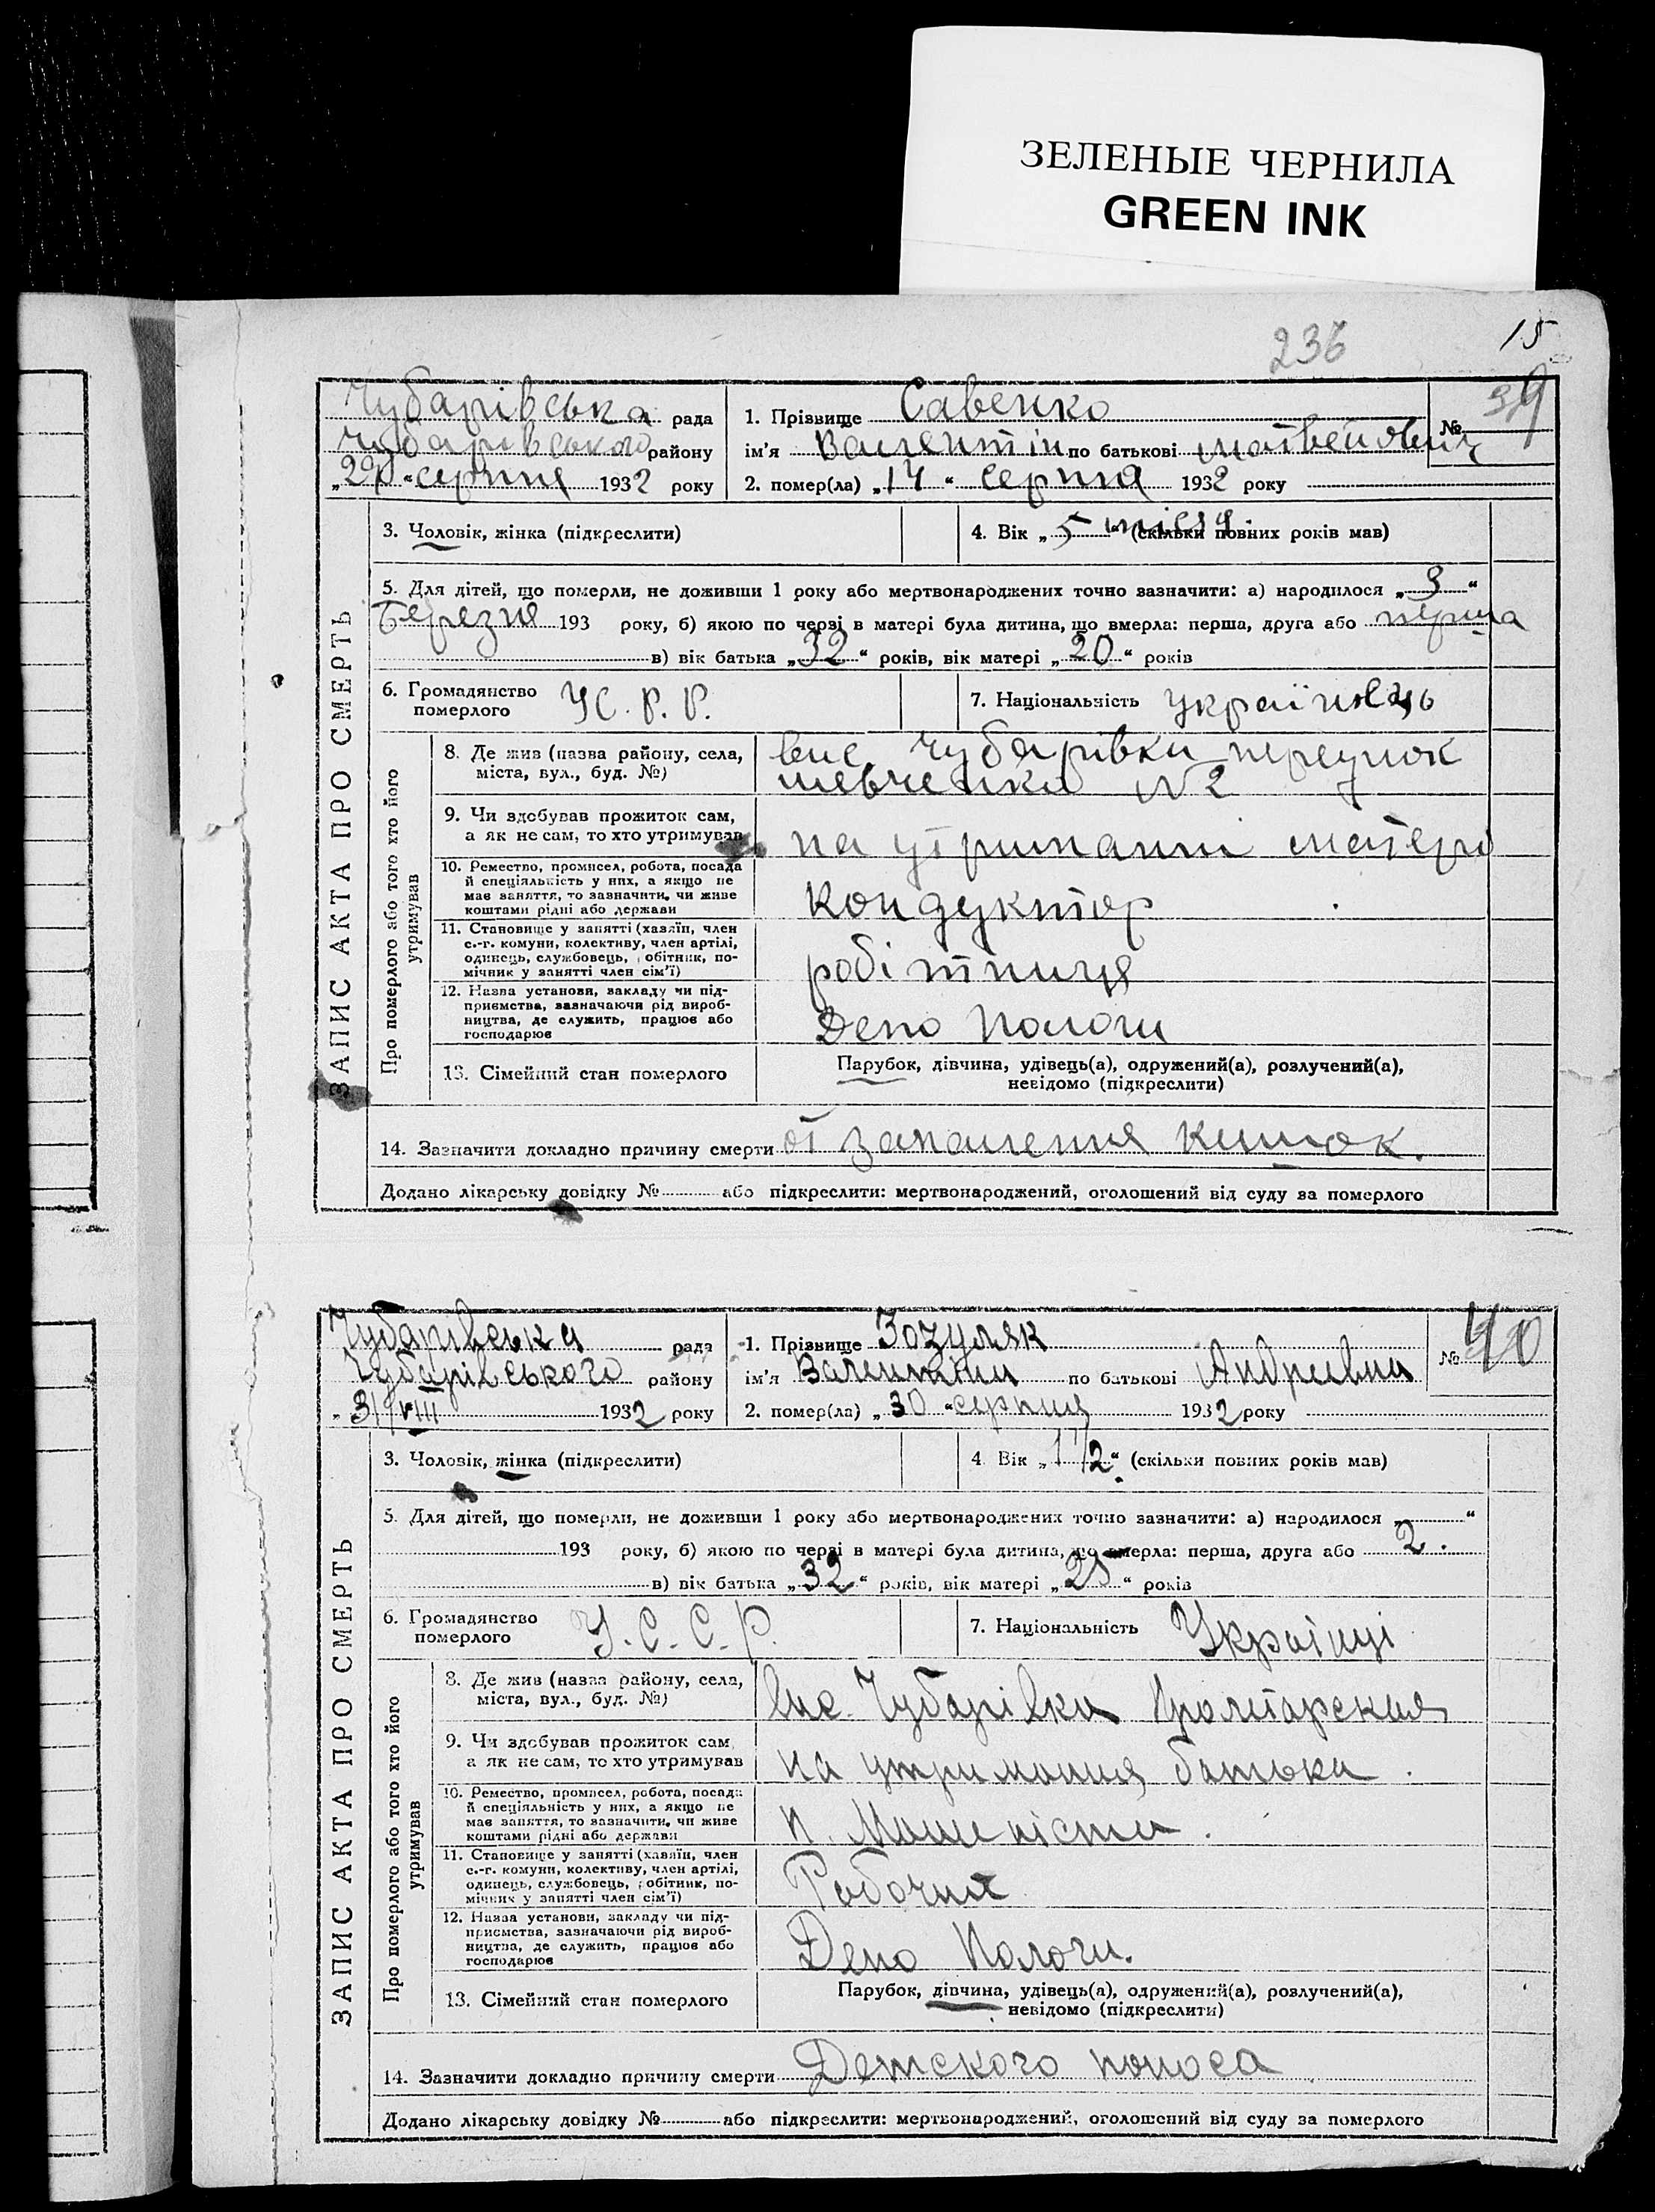 ЗЕЛЕНЫЕ ЧЕРНИЛА
GREEN INK
236
15
Чубарівська рада
Чубарівського району
„29“ серпня 1932 року
1. Прізвище Савенко
№ 39
ім'я Валентін по батькові матвейович
2. помер(ла) „14“ серпня 1932 року
ЗАПИС АКТА ПРО СМЕРТЬ
3. Чоловік, жінка (підкреслити)
4. Вік „5 місяц.“ (скільки повних років мав)
5. Для дітей, що померли, не доживши 1 року або мертвонароджених точно зазначити: а) народилося „3“
Березня 193 року, б) якою по черзі в матері була дитина, що вмерла: перша, друга або перша
в) вік батька „32“ років, вік матері „20“ років
6. Громадянство
померлого
У С. Р. Р.
7. Національність українець
Про померлого або того хто його
утримував
8. Де жив (назва району, села,
міста, вул., буд. №)
вис Чубарівки переулок
шевченка N 2
9. Чи здобував прожиток сам,
а як не сам, то хто утримував
на утриманні матері
10. Ремество, промисел, робота, посада
й спеціяльність у них, а якщо не
має заняття, то зазначити, чи живе
коштами рідні або держави
кондуктор
11. Становище у занятті (хазяїн, член
с.-г. комуни, колективу, член артілі,
одинець, службовець, робітник, по-
мічник у занятті член сім'ї)
робітниця
12. Назва установи, закладу чи під-
приємства, зазначаючи рід вироб-
ництва, де служить, працює або
господарює
Депо Пологи
13. Сімейний стан померлого
Парубок, дівчина, удівець(а), одружений(а), розлучений(а),
невідомо (підкреслити)
14. Зазначити докладно причину смерти от запалення кишок.
Додано лікарську довідку № або підкреслити: мертвонароджений, оголошений від суду за померлого
Чубарівська рада
Чубарівського району
„31/VIII 1932 року
1. Прізвище Зозуляк
№ 40
ім'я Валентини по батькові Андреевни
2. помер(ла) „30“ серпня 1932 року
ЗАПИС АКТА ПРО СМЕРТЬ
3. Чоловік, жінка (підкреслити)
4. Вік „1 1/2“ (скільки повних років мав)
5. Для дітей, що померли, не доживши 1 року або мертвонароджених точно зазначити: а) народилося „ “
193 року, б) якою по черзі в матері була дитина, що вмерла: перша, друга або 2.
в) вік батька „32“ років, вік матері „25“ років
6. Громадянство
померлого
У. С. С. Р.
7. Національність Українці
Про померлого або того хто його
утримував
8. Де жив (назва району, села,
міста, вул., буд. №)
вис. Чубарівка Пролетарская
9. Чи здобував прожиток сам,
а як не сам, то хто утримував
на утримания батька.
10. Ремество, промисел, робота, посада
й спеціяльність у них, а якщо не
має заняття, то зазначити, чи живе
коштами рідні або держави
П. Машиніста.
11. Становище у занятті (хазяїн, член
с.-г. комуни, колективу, член артілі,
одинець, службовець, робітник, по-
мічник у занятті член сім'ї)
Рабочий
12. Назва установи, закладу чи під-
приємства, зазначаючи рід вироб-
ництва, де служить, працює або
господарює
Депо Пологи.
13. Сімейний стан померлого
Парубок, дівчина, удівець(а), одружений(а), розлучений(а),
невідомо (підкреслити)
14. Зазначити докладно причину смерти Детского поноса
Додано лікарську довідку № або підкреслити: мертвонароджений, оголошений від суду за померлого